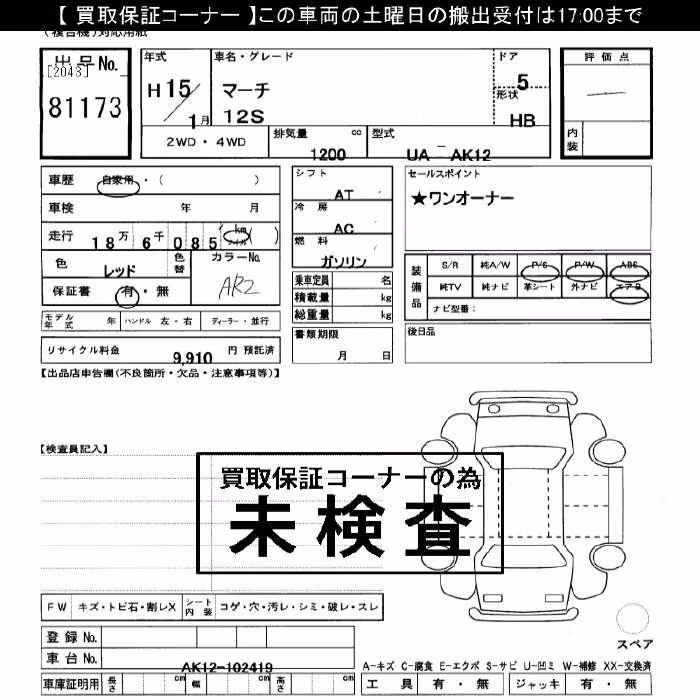 【 買取保証コーナー 】この車両の土曜日の搬出受付は17:00まで
(複合機)対応用紙
出品No. 年式 車名・グレード ドア 評価点
[2043]
81173 H15/1月 マーチ 5
12S 形状 HB 内装
2WD・4WD 排気量 cc 1200 型式 UA - AK12
車歴 自家用・( ) シフト AT セールスポイント
車検 年 月 冷房 AC ★ワンオーナー
走行 18万6千085 km マイル ( ) 燃料 ガソリン
色 レッド 色替 カラーNo. AR2
保証書 有・無
乗車定員 名
積載量 kg
総重量 kg
装備品 S/R 純A/W P/S P/W ABS
純TV 純ナビ 革シート 外ナビ エアB
ナビ型番:
モデル年式 年 ハンドル 左・右 ディーラー・並行
書類期限 月 日
後日品
リサイクル料金 9,910 円 預託済
【出品店申告欄(不良箇所・欠品・注意事項等)】
【検査員記入】
買取保証コーナーの為
未検査
FW キズ・トビ石・割レX シート内装 コゲ・穴・汚レ・シミ・破レ・スレ
登録No.
車台No. AK12-102419
スペア
A-キズ C-腐食 E-エクボ S-サビ U-凹ミ W-補修 XX-交換済
車庫証明用 長さ cm 幅 cm 高さ cm 工具 有・無 ジャッキ 有・無